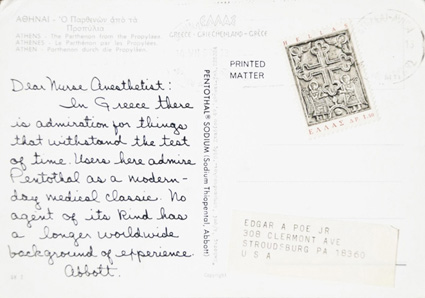 ΑΘΗΝΑΙ - Ὁ Παρθενών ἀπό τά
Προπύλαια
ATHENS - The Parthenon from the Propylaea
ATHENES - Le Parthénon par les Propylées
ATHEN - Parthenon durch die Propyläen
GREECE - GRIECHENLAND - GRÈCE
PRINTED
MATTER
ΕΛΛΑΣ
PENTOTHAL® SODIUM (Sodium Thiopental, Abbott)
Dear Nurse Anesthetist:
In Greece there
is admiration for things
that withstand the test
of time. Users here admire
Pentothal as a modern-
day medical classic. No
agent of its kind has
a longer worldwide
background of experience.
Abbott.
EDGAR A POE JR
308 CLERMONT AVE
STROUDSBURG PA 18360
U S A
Copyright